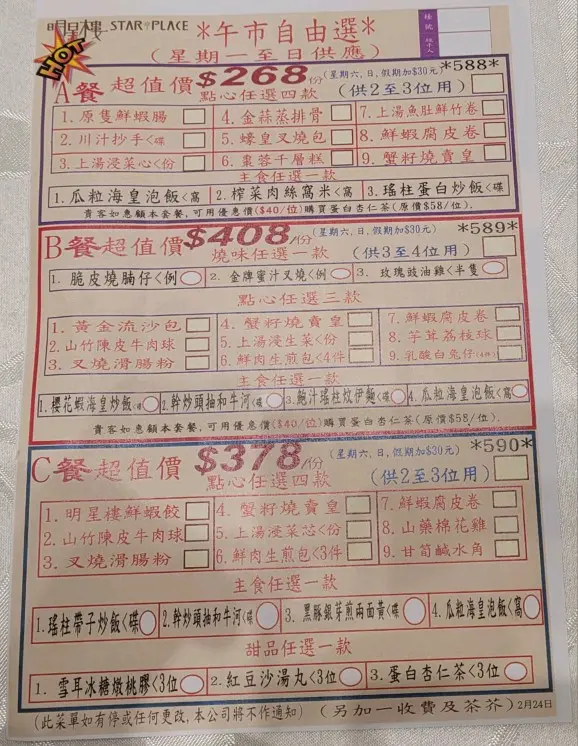 明星樓 STAR★PLACE *午市自由選*
檯號
經手人
(星期一至日供應)
HOT
A餐 超值價 $268/份 (星期六,日,假期加$30元) *588*
點心任選四款 (供2至3位用)
1. 原隻鮮蝦腸 4. 金蒜蒸排骨 7. 上湯魚肚鮮竹卷
2. 川汁抄手<碟 5. 蠔皇叉燒包 8. 鮮蝦腐皮卷
3. 上湯浸菜心<份 6. 棗蓉千層糕 9. 蟹籽燒賣皇
主食任選一款
1. 瓜粒海皇泡飯<窩 2. 榨菜肉絲窩米<窩 3. 瑤柱蛋白炒飯<碟
貴客如惠顧本套餐,可用優惠價($40/位)購買蛋白杏仁茶(原價$58/位).
B餐 超值價 $408/份 (星期六,日,假期加$30元) *589*
燒味任選一款 (供3至4位用)
1. 脆皮燒腩仔<例 2. 金牌蜜汁叉燒<例 3. 玫瑰豉油雞<半隻
點心任選三款
1. 黃金流沙包 4. 蟹籽燒賣皇 7. 鮮蝦腐皮卷
2. 山竹陳皮牛肉球 5. 上湯浸生菜<份 8. 芋茸荔枝球
3. 叉燒滑腸粉 6. 鮮肉生煎包<4件 9. 乳酸白兔仔(4件)
主食任選一款
1. 櫻花蝦海皇炒飯<碟 2. 幹炒頭抽和牛河<碟 3. 鮑汁瑤柱炆伊麵<碟 4. 瓜粒海皇泡飯<窩
貴客如惠顧本套餐,可用優惠價($40/位)購買蛋白杏仁茶(原價$58/位).
C餐 超值價 $378/份 (星期六,日,假期加$30元) *590*
點心任選四款 (供2至3位用)
1. 明星樓鮮蝦餃 4. 蟹籽燒賣皇 7. 鮮蝦腐皮卷
2. 山竹陳皮牛肉球 5. 上湯浸菜芯<份 8. 山藥棉花雞
3. 叉燒滑腸粉 6. 鮮肉生煎包<3件 9. 甘筍鹹水角
主食任選一款
1. 瑤柱帶子炒飯<碟 2. 幹炒頭抽和牛河<碟 3. 黑豚銀芽煎兩面黃<碟 4. 瓜粒海皇泡飯<窩
甜品任選一款
1. 雪耳冰糖燉桃膠<3位 2. 紅豆沙湯丸<3位 3. 蛋白杏仁茶<3位
(此菜單如有停或任何更改,本公司將不作通知) (另加一收費及茶芥) 2月24日